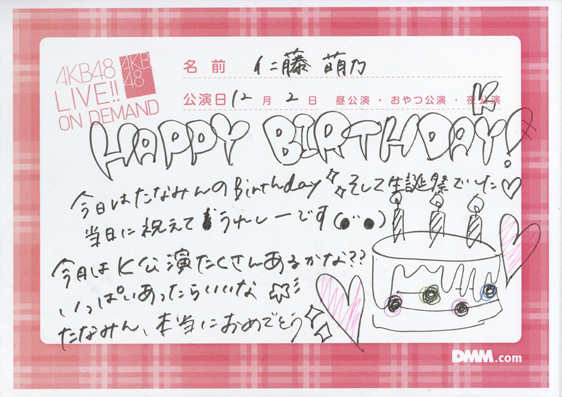 AKB48
LIVE!!
ON DEMAND
AKB
48
名前 仁藤 萌乃
公演日 12月2日 昼公演・おやつ公演・夜公演
K
HAPPY BIRTHDAY!
今日はたなみんのBirthday そして生誕祭でした♡
当日に祝えてうれしーです(●¨●)
今月はK公演たくさんあるかな??
いっぱいあったらいいな☆彡
たなみん、本当におめでとう
DMM.com